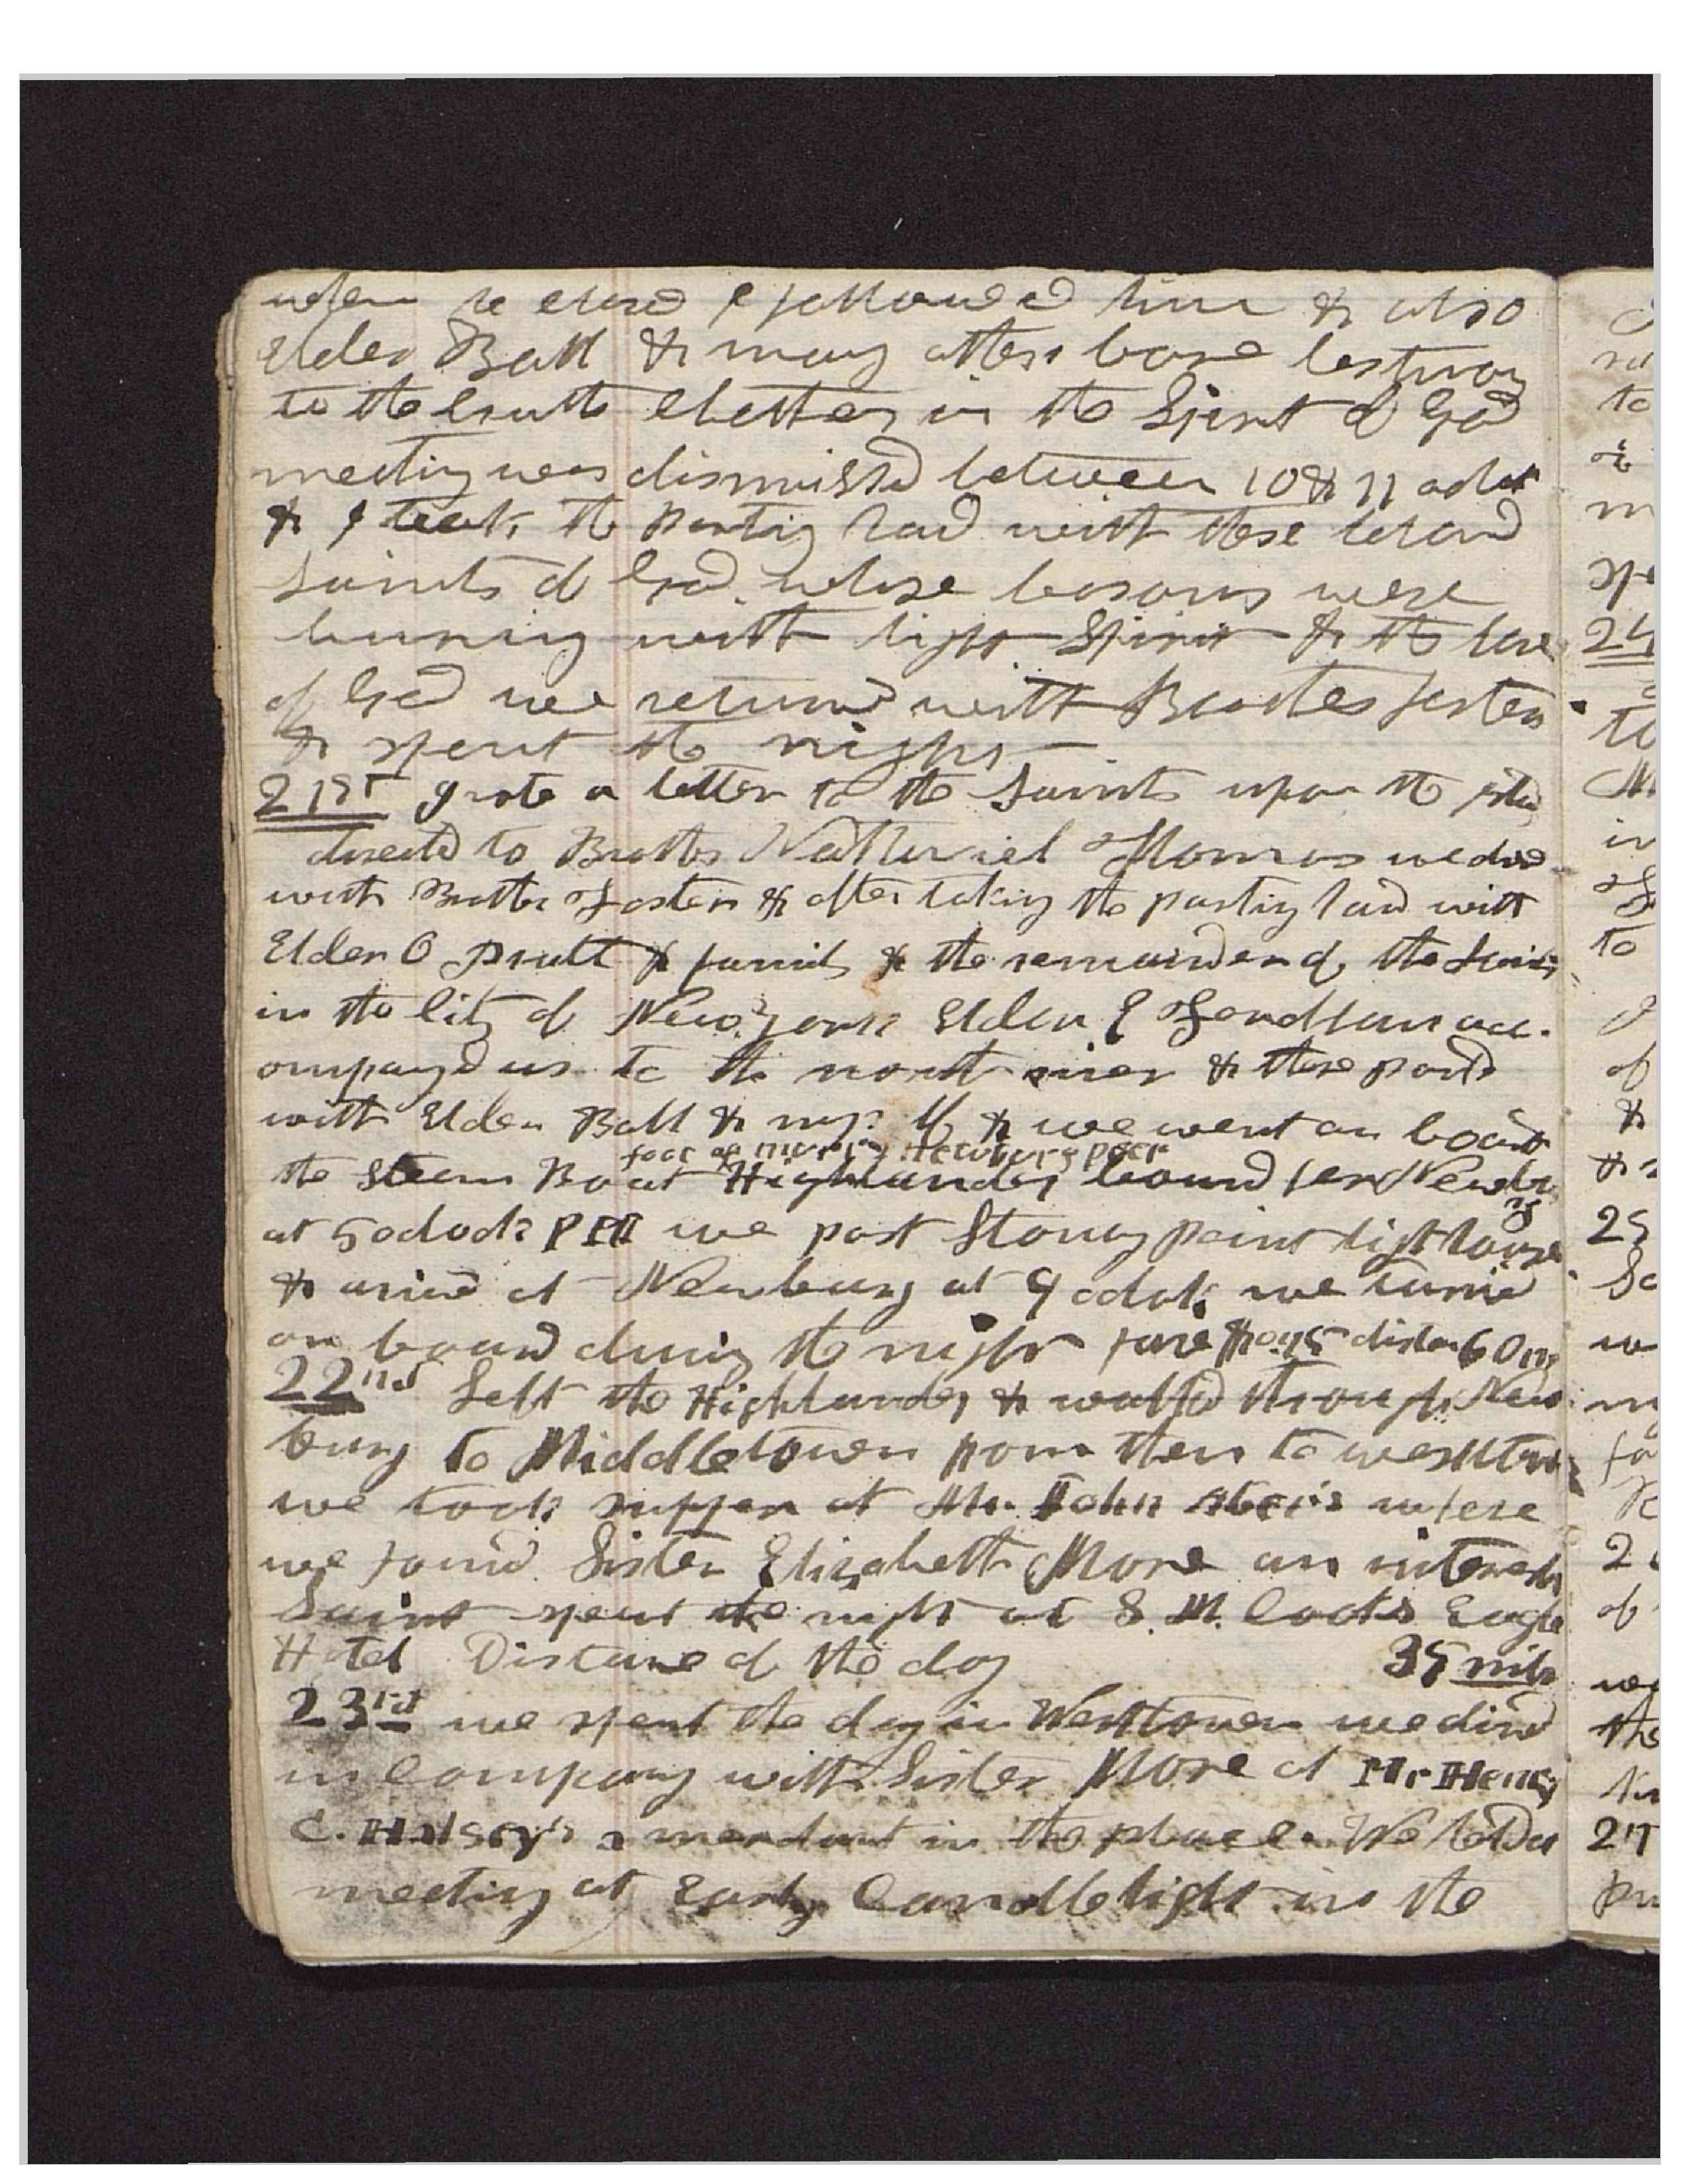 when he closed I followed him & also
Elder Ball & many others bore testimony
to the truth & betters in the Spirit of God
meeting was dismissed between 10 & 11 oclok
& I took the Parting hand with these beloved
Saints of God whose bosoms were
burning with light Spirit & the love
of God we returned with Brother Foster
& spent the night
21st I wrote a letter to the Saints upon the
directed to Brother Nathaniel Thomas we dined
with Brother Foster & after taking the parting hand with
Elder O Pratt & family & the remainder of the Saints
in the City of New York Elder E acc-
ompanyed us to the north river & there parted
with Elder Ball & we went on board
foot of murray Newbury peer
the Steem Boat Highlander bound for Newbu
rg
at 5 oclock PM we past Stoney point light house
& arived at Newburg at 9 oclok we taried
on board during the night fare distan 60 m
22nd Left the Highlander & walked through New
burg to Middletown from then to westtown
we took supper at Mr. John where
we found Sister Elizabeth More an interesting
Saint spent the night at S. M. Cook's Eagle
Hotel Distance of the day 35 mile
23rd we spent the day in Westtown we dined
in Company with Sister More at Mr Henry
C. Halsey's a merchant in the place. We held a
meeting at Early Candle light in the